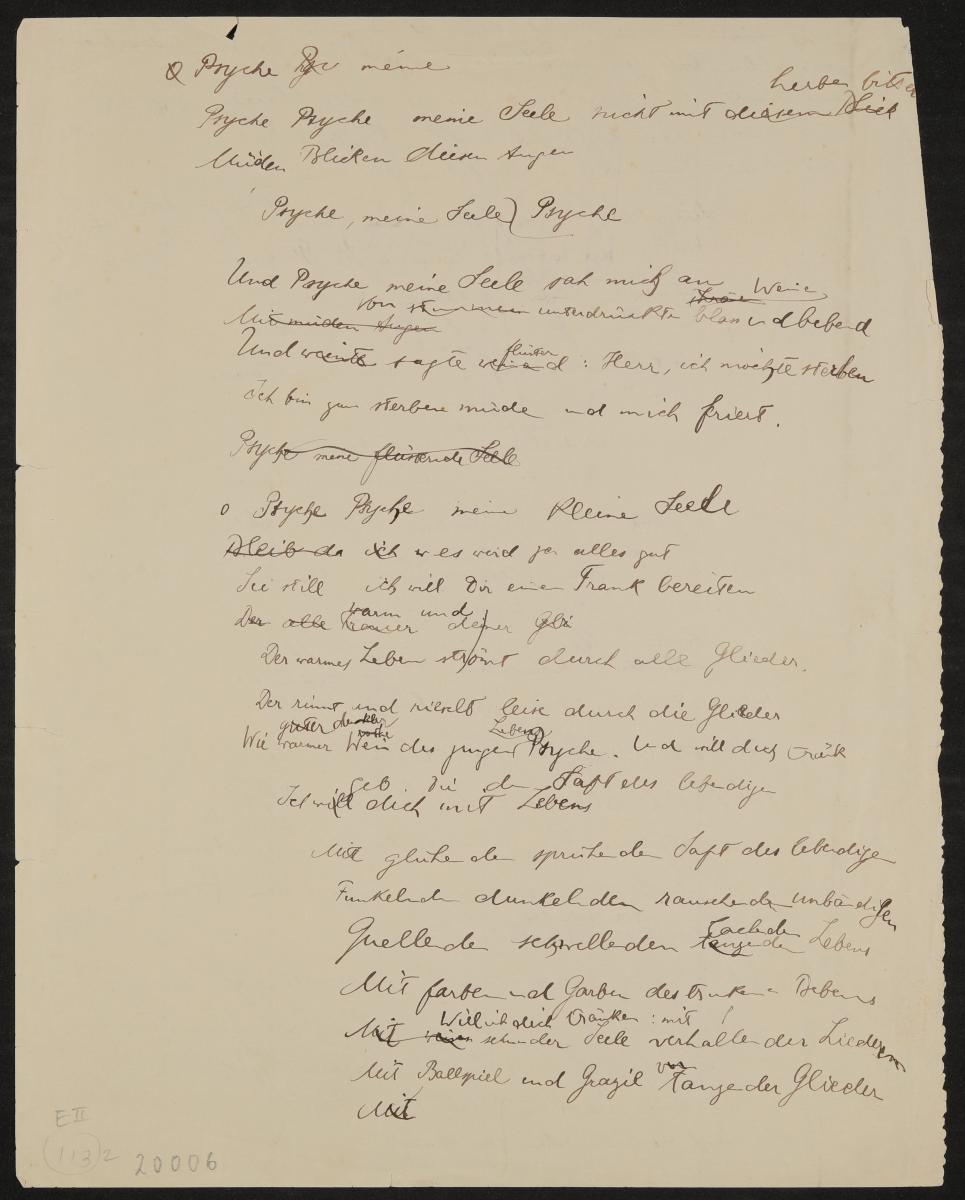 O Psyche Psyc meine
herben bittern
Psyche Psyche meine Seele nicht mit diesem Blick
Müden Blicken diesen Augen
Psyche, meine Seele) Psyche
Und Psyche meine Seele sah mich an
Mit müden Augen Von stummem unterdrückten blass und bebend
Und weinte sagte flüsternd : Herr, ich möchte sterben
Ich bin zum sterben müde und mich friert.
Psyche meine flüsternde Seele
O Psyche Psyche meine Kleine Seele
Bleib da ich w es wird ja alles gut
Sei still ich will Dir einen Trank bereiten
warm und
Der alle Trauer deiner
Der warmes Leben strömt durch alle Glieder.
Der rinnt und rieselt leise durch die Glieder
guter dunkler rother Lebens
Wie warmer Wein des jungen Psyche. Und will dich tränk
geb Dir den Saft des lebendigen
Ich will dich mit Lebens
Mit glühenden sprühenden Saft des lebendigen
Funkelnden dunkelnden rauschenden unbändigen
lachenden
Quellenden schwellenden tanzenden Lebens
Mit farben und Garben des trunkenen Bebens
Will ich dich tränken : mit !
Mit der Seele verhallender Liedern
Mit Ballspiel und Grazil von Tanzender Glieder
Mit
E II
113 2
20006